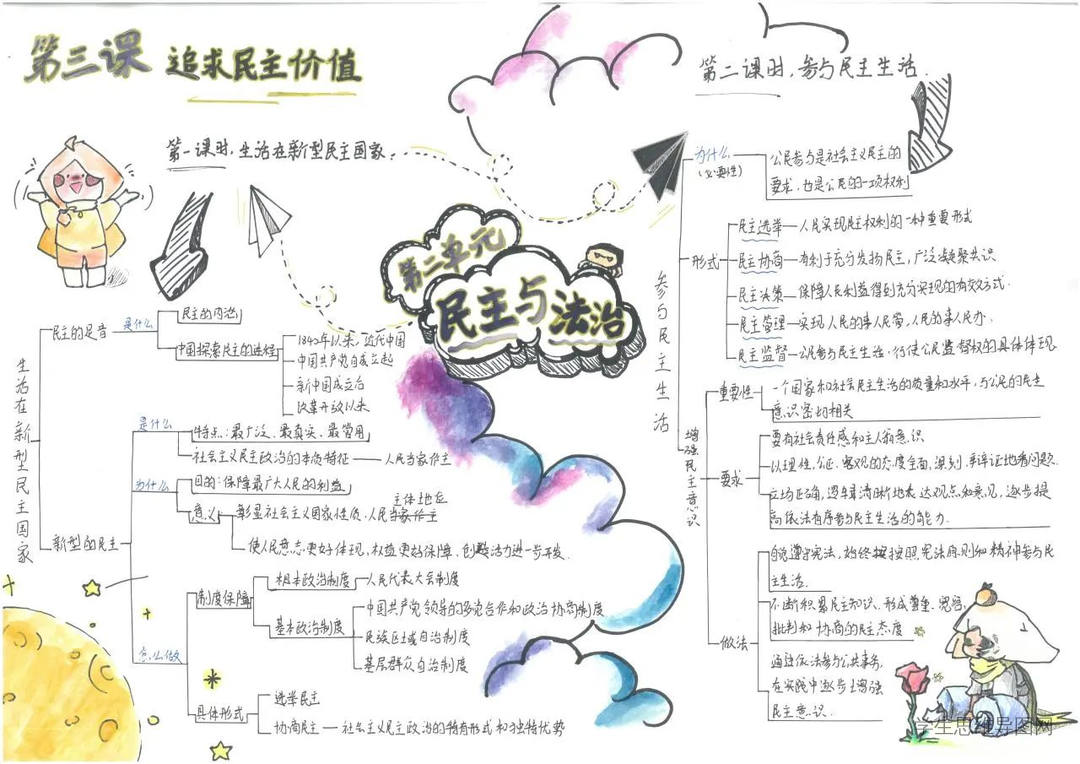 第三课 追求民主价值
第一课时,生活在新型民主国家.
第二单元
民主与法治
生活在新型民主国家
民主的足音
是什么
民主的内涵
中国探索民主的进程
1840年以来,近代中国
中国共产党自成立起
新中国成立后
改革开放以来
新型的民主
是什么
特点:最广泛、最真实、最管用
社会主义民主政治的本质特征
人民当家作主
为什么
目的:保障最广大人民的利益
意义
主体地位
彰显社会主义国家性质,人民当家作主
使人民意志更好体现,权益更好保障,创造活力进一步开发.
怎么做
制度保障
根本政治制度
人民代表大会制度
基本政治制度
中国共产党领导的多党合作和政治协商制度
民族区域自治制度
基层群众自治制度
具体形式
选举民主
协商民主
社会主义民主政治的特有形式和独特优势
第二课时,参与民主生活.
参与民主生活
为什么
(必要性)
公民参与是社会主义民主的
要求,也是公民的一项权利
形式
民主选举—人民实现民主权利的一种重要形式
民主协商—有利于充分发扬民主,广泛凝聚共识
民主决策—保障人民利益得到充分实现的有效方式.
民主管理—实现人民的事人民管,人民的事人民办.
民主监督—公民参与民主生活,行使公民监督权的具体体现
增强民主意识
重要性
一个国家和社会民主生活的质量和水平,与公民的民主
意识密切相关
要求
要有社会责任感和主人翁意识
以理性,公正,客观的态度全面,深刻,辩证地看问题.
立场正确,逻辑清晰地表达观点和意见,逐步提
高依法有序参与民主生活的能力.
做法
自觉遵守宪法,始终按照宪法原则和精神参与民
主生活.
不断积累民主知识,形成尊重、宽容,
批判和协商的民主态度
通过依法参与公共事务,
在实践中逐步增强
民主意识.
学生思维导图网